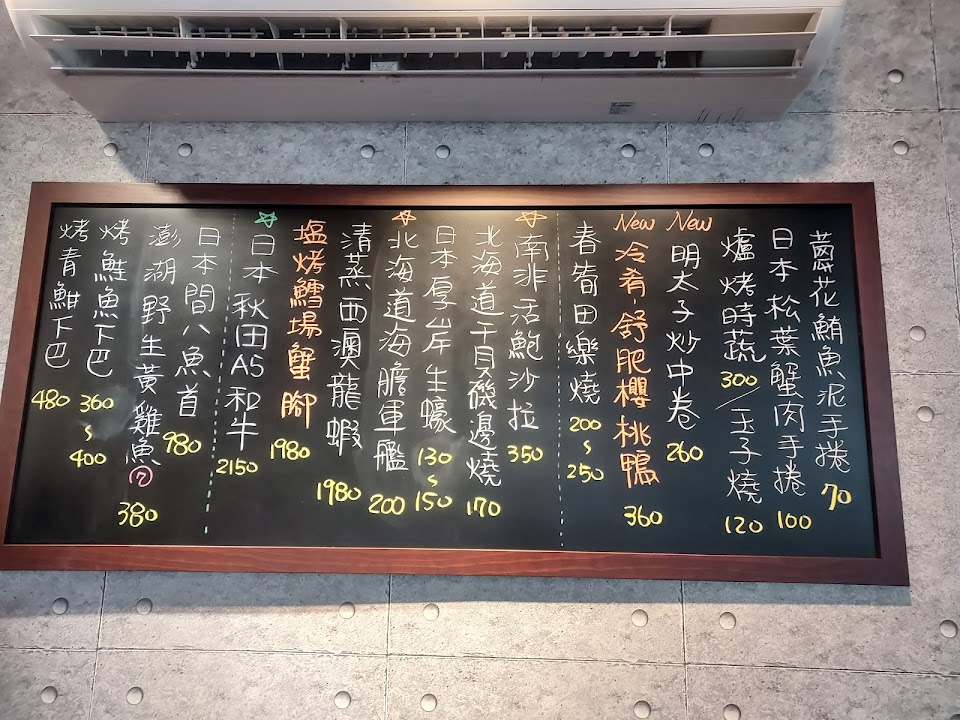 蔥花鮪魚泥手捲 70
日本松葉蟹肉手捲 100
爐烤時蔬 300 / 玉子燒 120
New 明太子炒中卷 260
New 冷肴-舒肥櫻桃鴨 360
春筍田樂燒 200~250
南非活鮑沙拉 350
北海道干貝磯邊燒 170
日本厚岸生蠔 130~150
北海道海膽軍艦 200
清蒸西澳龍蝦 1980
塩烤鱈場蟹腳 1980
日本秋田A5和牛 2150
日本間八魚首 980
澎湖野生黃雞魚(7) 380
烤鮭魚下巴 360~400
烤青魽下巴 480